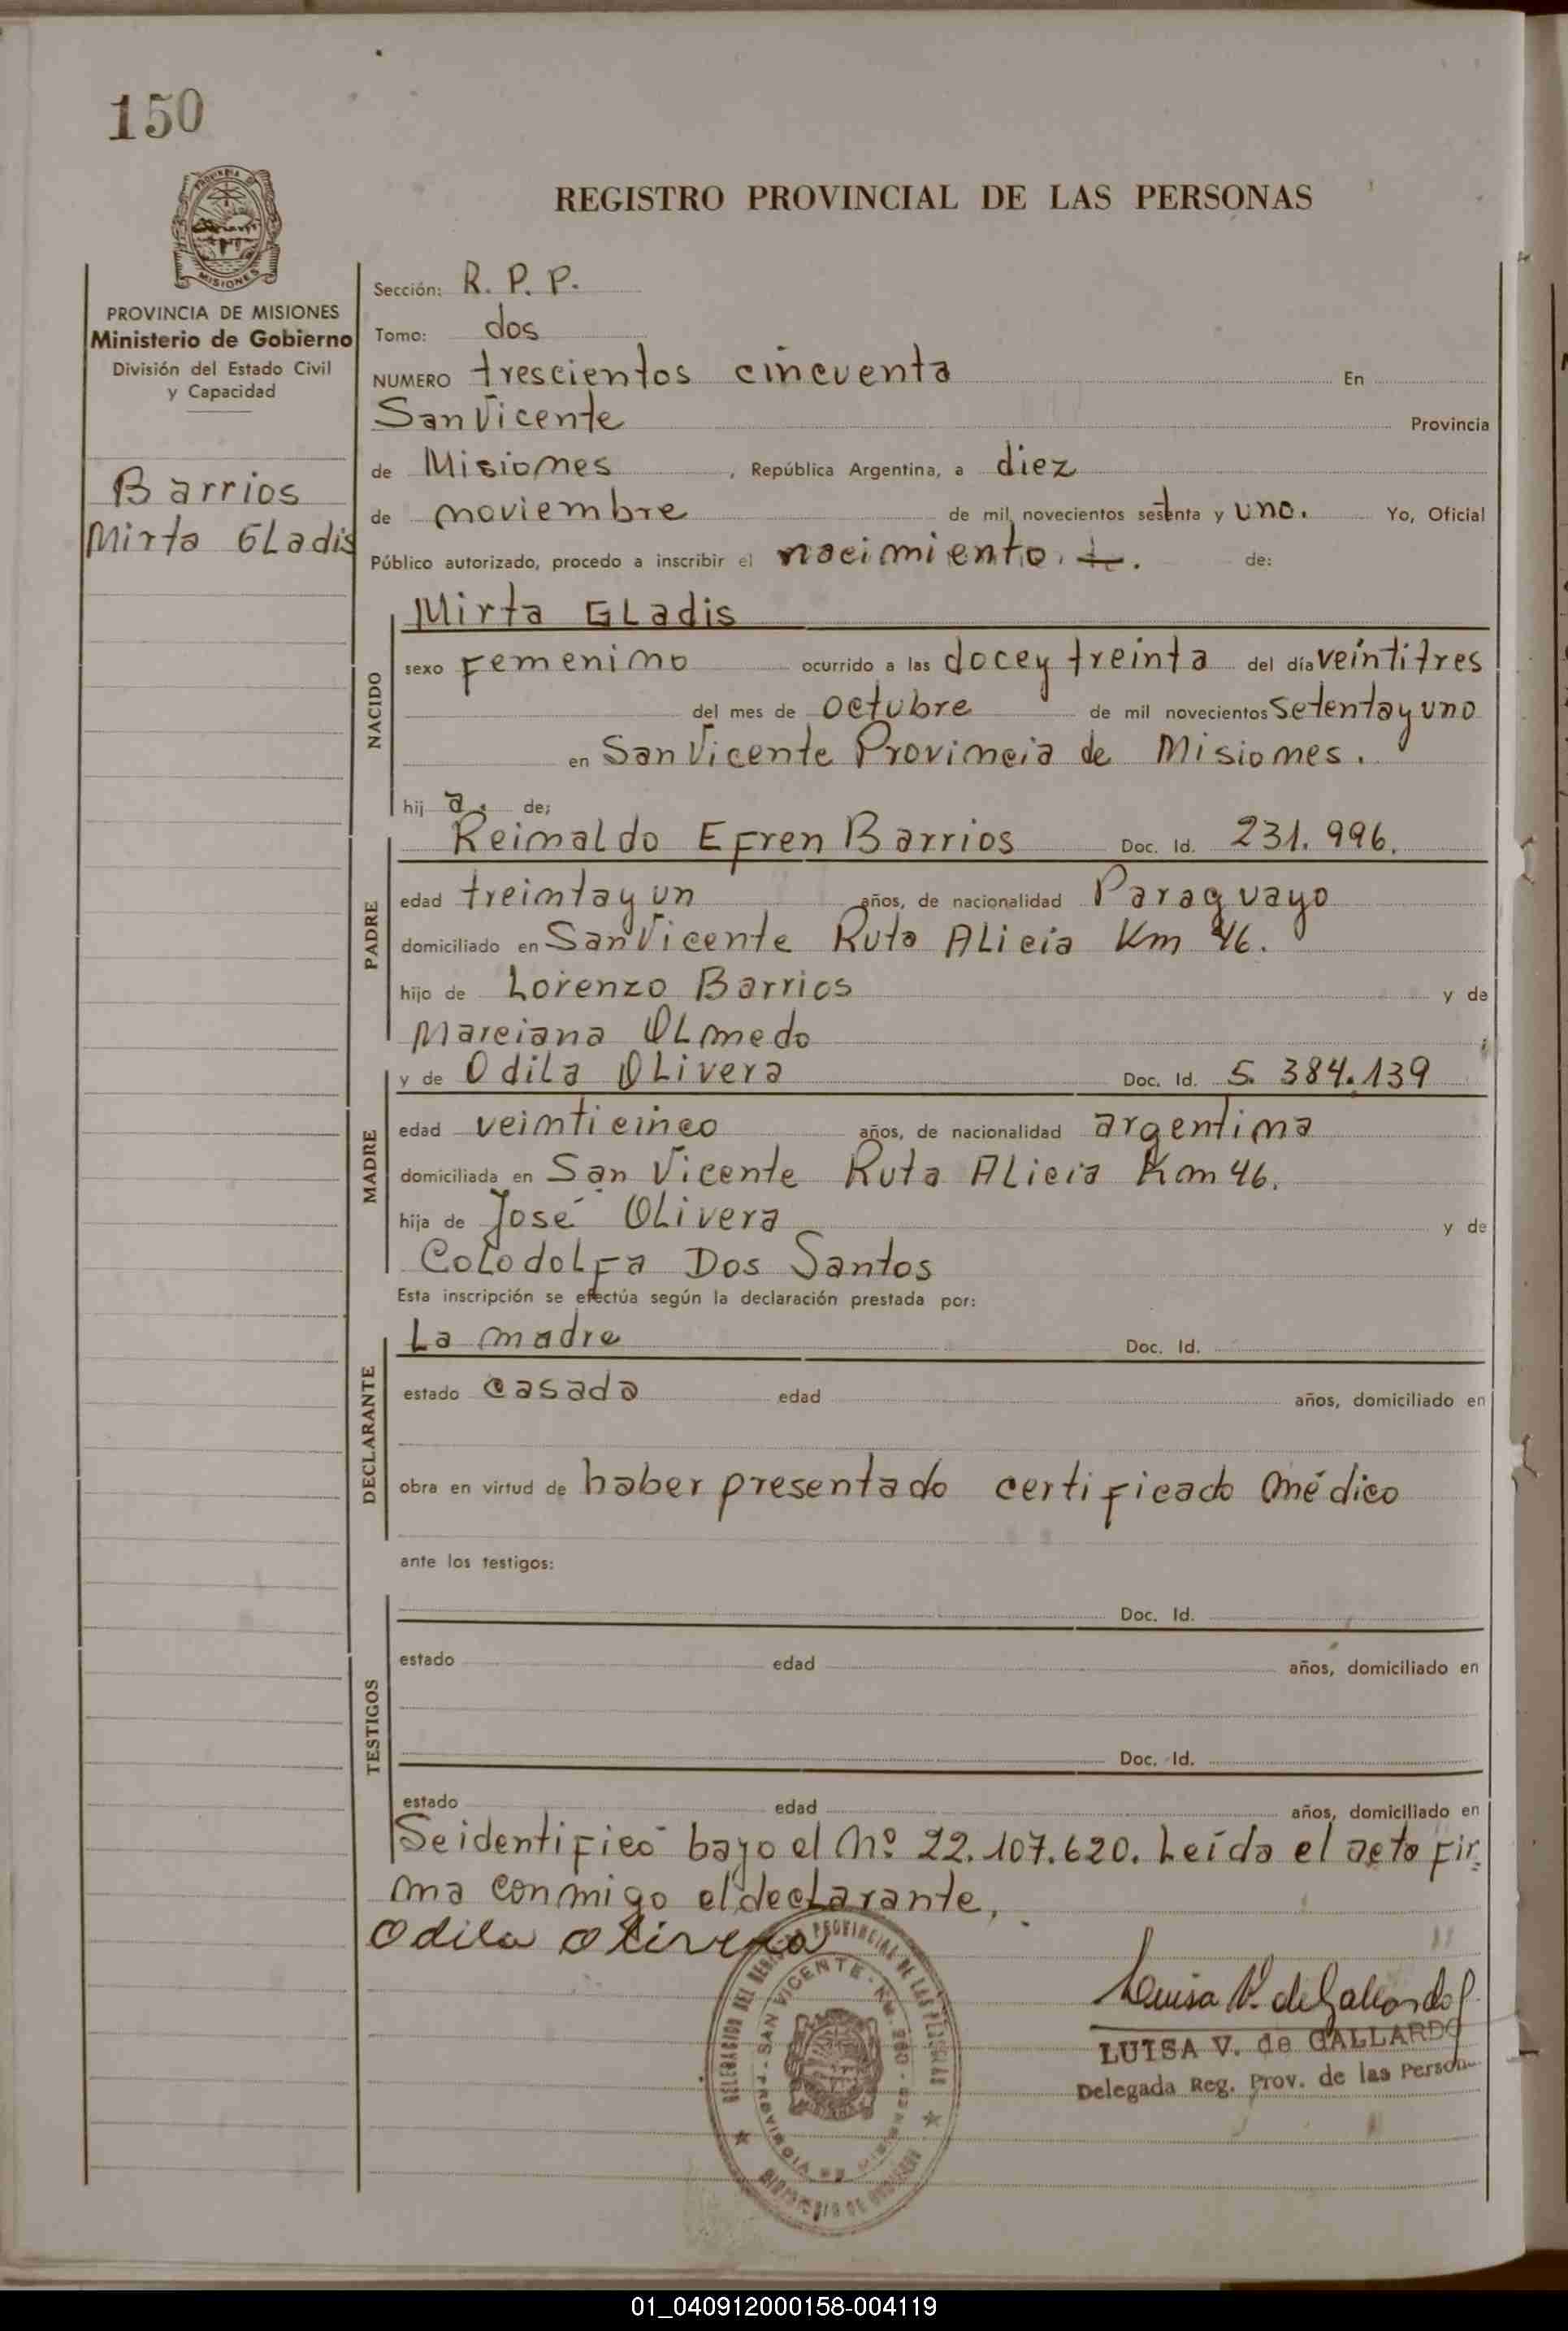 150
REGISTRO PROVINCIAL DE LAS PERSONAS
PROVINCIA DE MISIONES
Ministerio de Gobierno
División del Estado Civil
y Capacidad
Barrios
Mirta GLadis
Sección: R. P. P.
Tomo: dos
NUMERO trescientos cincuenta En
San Vicente Provincia
de Misiones, República Argentina, a diez
de noviembre de mil novecientos setenta y uno. Yo, Oficial
Público autorizado, procedo a inscribir el nacimiento. de:
NACIDO
Mirta GLadis
sexo Femenino ocurrido a las doce y treinta del día veintitres
del mes de octubre de mil novecientos setenta y uno
en San Vicente Provincia de Misiones.
hij a. de;
PADRE
Reinaldo Efren Barrios Doc. Id. 231.996.
edad treinta y un años, de nacionalidad Paraguayo
domiciliado en San Vicente Ruta ALicia Km 46.
hijo de Lorenzo Barrios y de
Marciana OLmedo
MADRE
y de Odila OLivera Doc. Id. 5.384.139
edad veinticinco años, de nacionalidad argentina
domiciliada en San Vicente Ruta ALicia Km 46.
hija de José OLivera y de
CoLodoLfa Dos Santos
Esta inscripción se efectúa según la declaración prestada por:
DECLARANTE
La madre Doc. Id.
estado casada edad años, domiciliado en
obra en virtud de haber presentado certificado médico
ante los testigos:
TESTIGOS
Doc. Id.
estado edad años, domiciliado en
Doc. Id.
estado edad años, domiciliado en
Se identificó bajo el nº 22.107.620. Leída el acta fir=
ma conmigo el declarante.
Odila Olivera
Luisa V. de Gallardo
LUISA V. de GALLARDO
Delegada Reg. Prov. de las Person
SAN VICENTE
PROVINCIA DE MISIONES
01_040912000158-004119